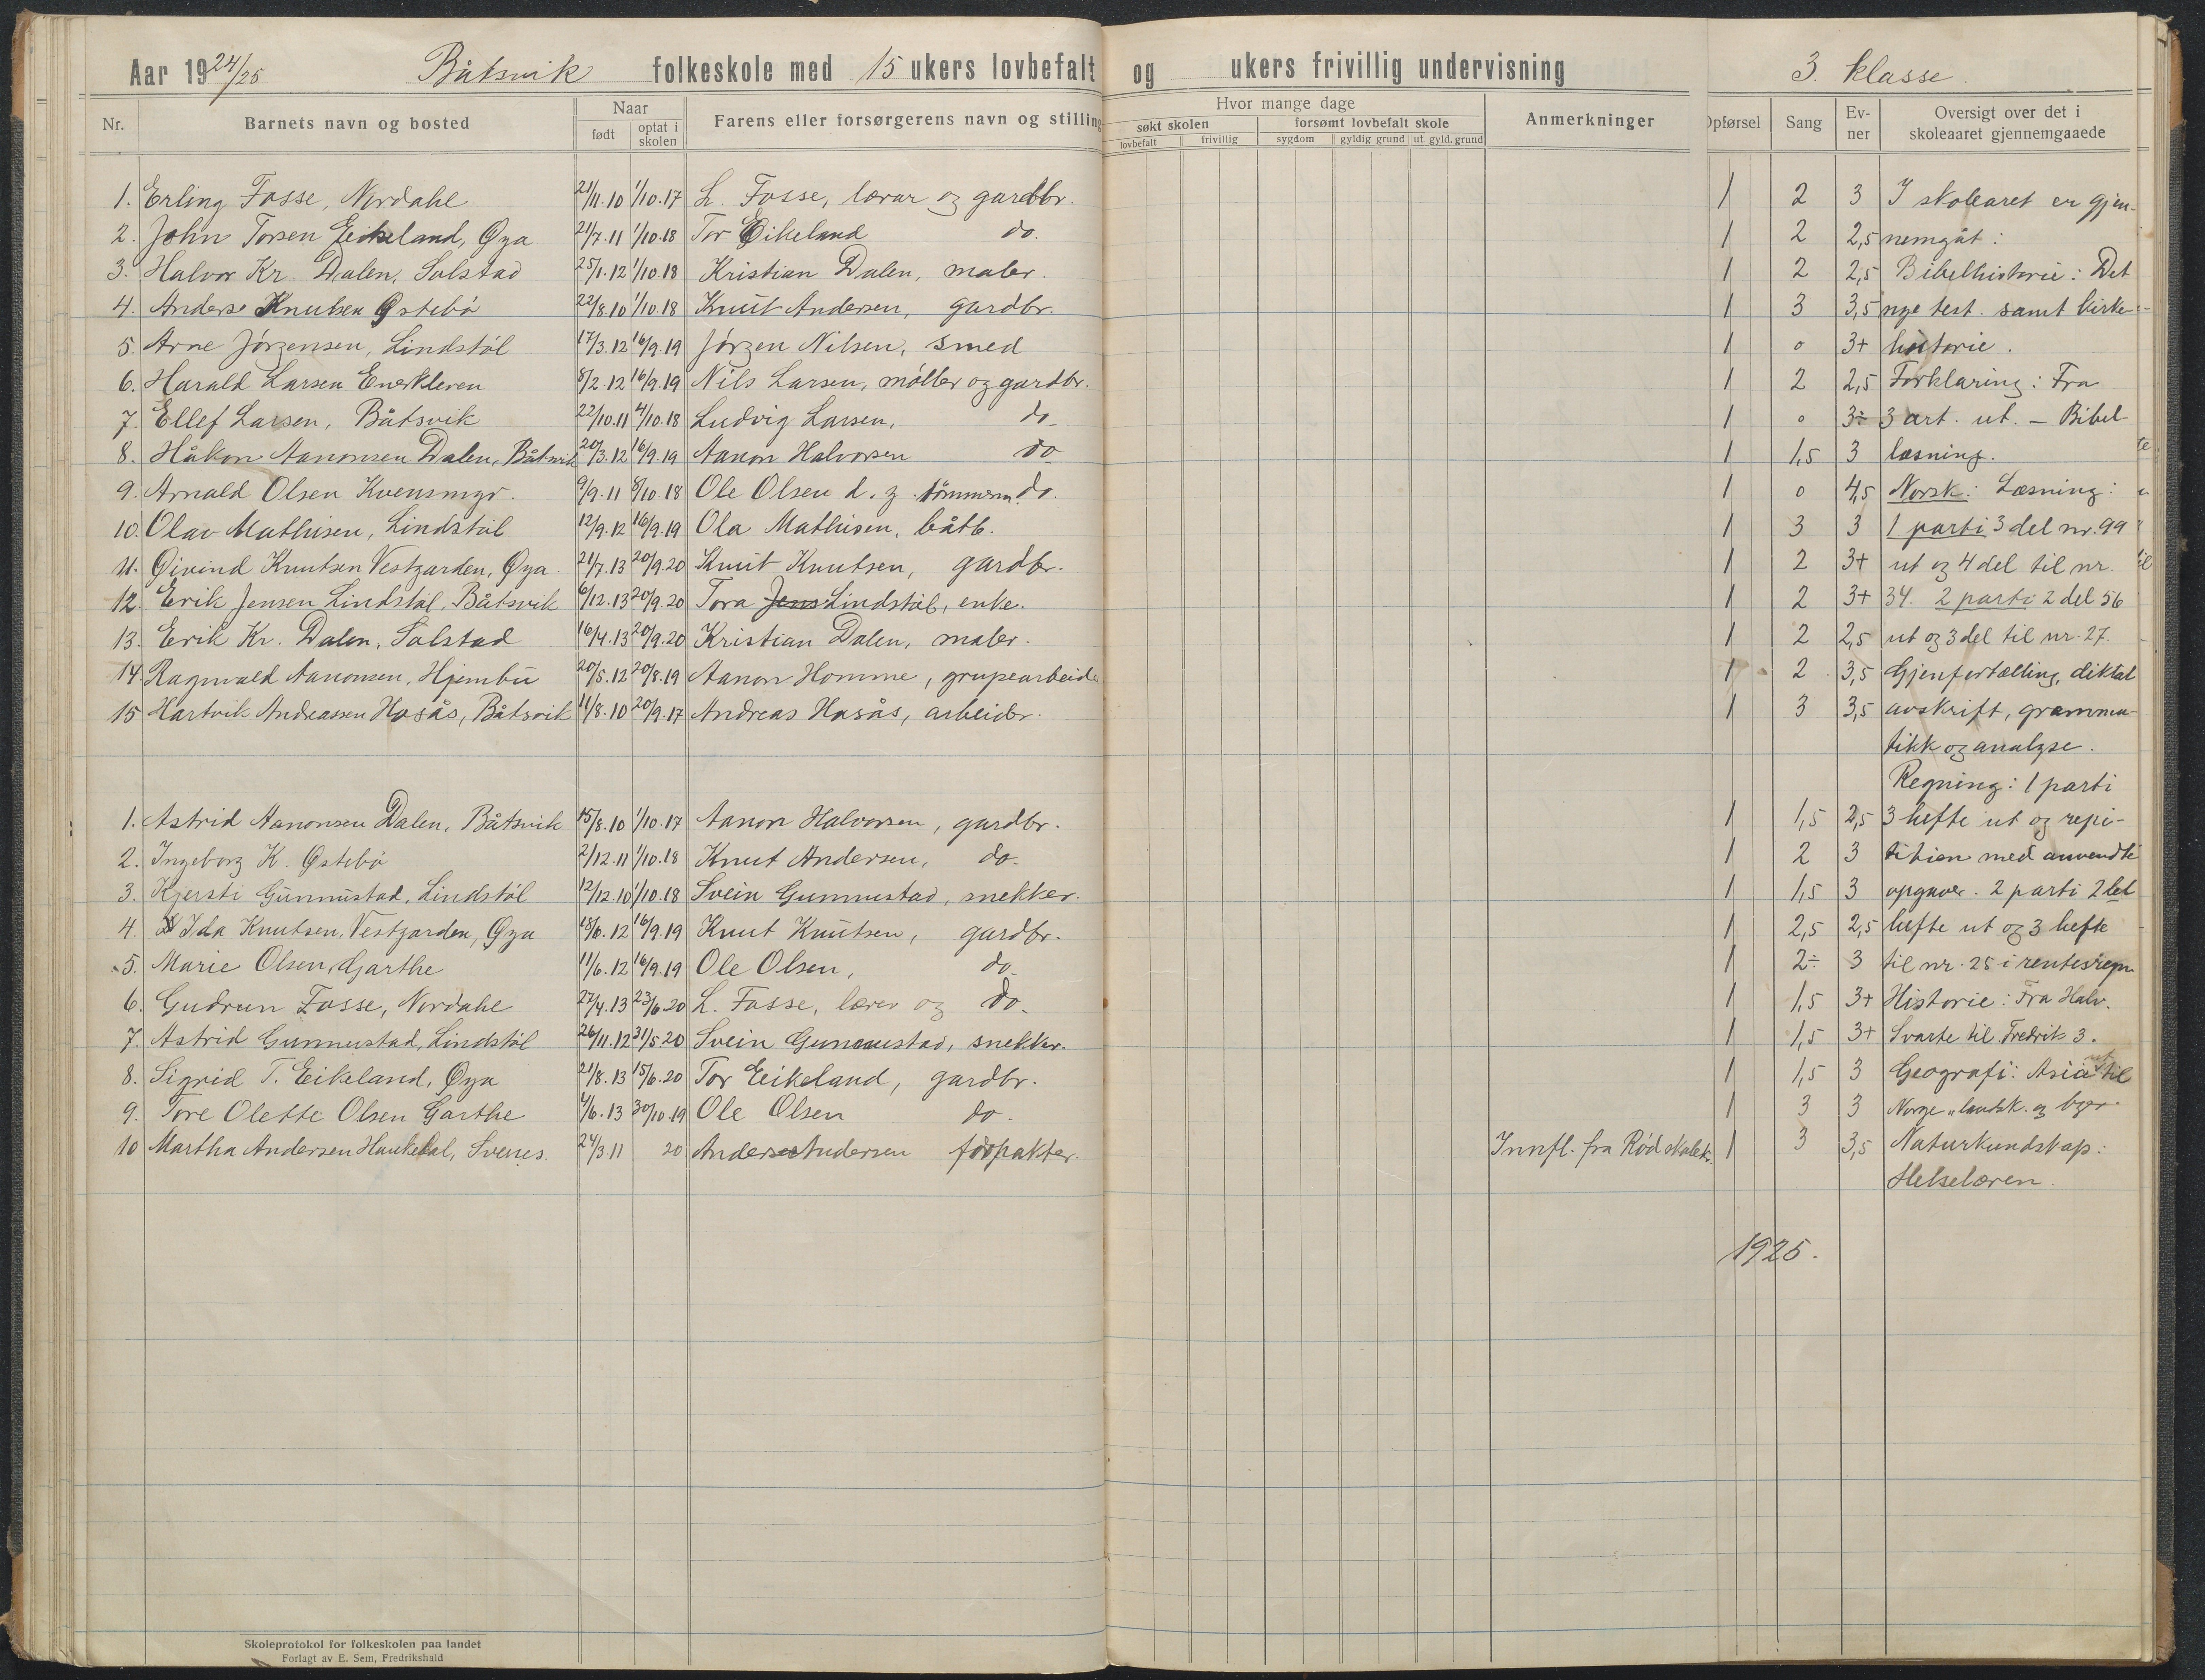 Aar 1924/25 Båtsvik folkeskole med 15 ukers lovbefalt og ukers frivillig undervisning 3. klasse.
Nr. Barnets navn og bosted Naar født optat i skolen Farens eller forsørgerens navn og stilling Hvor mange dage søkt skolen lovbefalt frivillig forsømt lovbefalt skole sygdom gyldig grund ut gyld. grund Anmerkninger Opførsel Sang Evner Oversigt over det i skoleaaret gjennemgaaede
1. Erling Fosse, Nordahl 21/11.10 1/10.17 L. Fosse, lærar og gardbr. 1 2 3 I skolearet er gjen-
2. John Torsen Eikeland, Øya 21/7.11 1/10.18 Tor Eikeland do. 1 2 2,5 nemgåt:
3. Halvor Kr. Dalen, Solstad 25/1.12 1/10.18 Kristian Dalen, maler. 1 2 2,5 Bibelhistorie: Det
4. Anders Knutsen Østebö 22/8.10 1/10.18 Knut Andersen, gardbr. 1 3 3,5 nye test. samt kirke-
5. Arne Jörgensen, Lindstöl 17/3.12 16/9.19 Jörgen Nilsen, smed 1 0 3+ historie.
6. Harald Larsen Enerkleven 8/2.12 16/9.19 Nils Larsen, møller og gardbr. 1 2 2,5 Forklaring: Fra
7. Ellef Larsen, Båtsvik 22/10.11 4/10.18 Ludvig Larsen, do. 1 0 3÷ 3 art. ut. – Bibel-
8. Håkon Aanonsen Dalen, Båtsvik 20/3.12 16/9.19 Aanon Halvorsen do 1 1,5 3 læsning.
9. Arnald Olsen Kvensmyr. 9/9.11 8/10.18 Ole Olsen d. y. tömmerm. do. 1 0 4,5 Norsk: Læsning:
10. Olav Mathisen, Lindstöl 12/9.12 16/9.19 Ola Mathisen, båtb. 1 3 3 1 parti 3 del nr. 99
11. Øivind Knutsen Vestgarden, Øya. 21/7.13 20/9.20 Knut Knutsen, gardbr. 1 2 3+ ut og 4 del til nr.
12. Erik Jensen Lindstöl, Båtsvik 6/12.13 20/9.20 Tora Jens Lindstöl, enke. 1 2 3+ 34. 2 parti 2 del 56
13. Erik Kr. Dalen, Solstad 16/4.13 20/9.20 Kristian Dalen, maler. 1 2 2,5 ut og 3 del til nr. 27.
14. Ragnvald Aanonsen, Hjembu 20/5.12 20/8.19 Aanon Homme, grupearbeide 1 2 3,5 Gjenfortælling, diktat
15 Hartvik Andreassen Hasås, Båtsvik 11/8.10 20/9.17 Andreas Hasås, arbeider. 1 3 3,5 avskrift, gramma-
tikk og analyse.
Regning: 1 parti
1. Astrid Aanonsen Dalen, Båtsvik 15/8.10 1/10.17 Aanon Halvorsen, gardbr. 1 1,5 2,5 3 hefte ut og repi-
2. Ingeborg K. Östebö 2/12.11 1/10.18 Knut Andersen, do. 1 2 3 tition med anvendte
3. Kjersti Gunnustad, Lindstöl 12/12.10 1/10.18 Svein Gunnustad, snekker. 1 1,5 3 opgaver. 2 parti 2det
4. Ida Knutsen, Vestgarden, Øya 18/6.12 16/9.19 Knut Knutsen, gardbr. 1 2,5 2,5 hefte ut og 3 hefte
5. Marie Olsen, Garthe 11/6.12 16/9.19 Ole Olsen, do. 1 2÷ 3 til nr. 25 i rentesregn
6. Gudrun Fosse, Nordahl 27/4.13 23/6.20 L. Fosse, lærer og do. 1 1,5 3+ Historie: Fra Halv.
7. Astrid Gunnustad, Lindstöl 26/11.12 31/5.20 Svein Gunnustad, snekker. 1 1,5 3+ Svarte til Fredrik 3.
8. Sigrid T. Eikeland, Øya 21/8.13 15/6.20 Tor Eikeland, gardbr. 1 1,5 3 Geografi: Asia ut til
9. Tore Olette Olsen Garthe 4/6.13 30/10.19 Ole Olsen do. 1 3 3 Norge „landsk. og byer.
10 Martha Andersen Haukedal, Svenes. 24/3.11 20 Anders Andersen forpakter. Innfl. fra Rød skolekr. 1 3 3,5 Naturkundskap:
Helselæren.
1925.
Skoleprotokol for folkeskolen paa landet
Forlagt av E. Sem, Fredrikshald